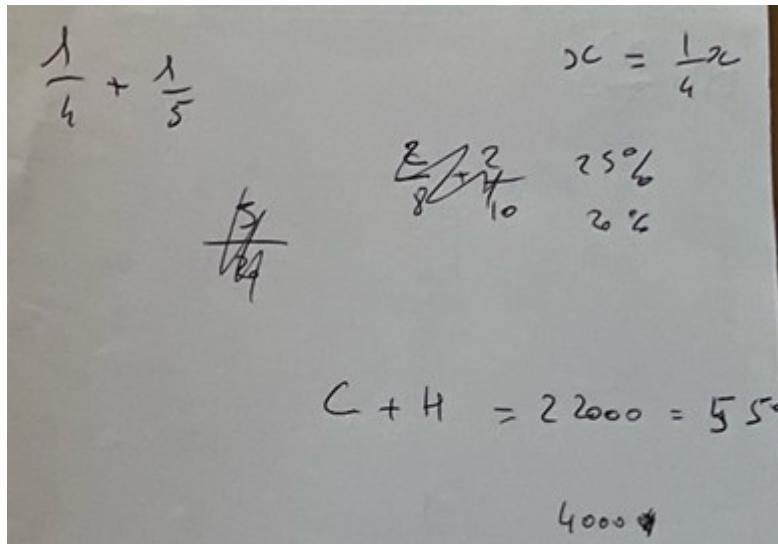 1/4 + 1/5
x = 1/4 x
2/8 + 2/10
25%
20%
C + H = 22000 = 55
4000